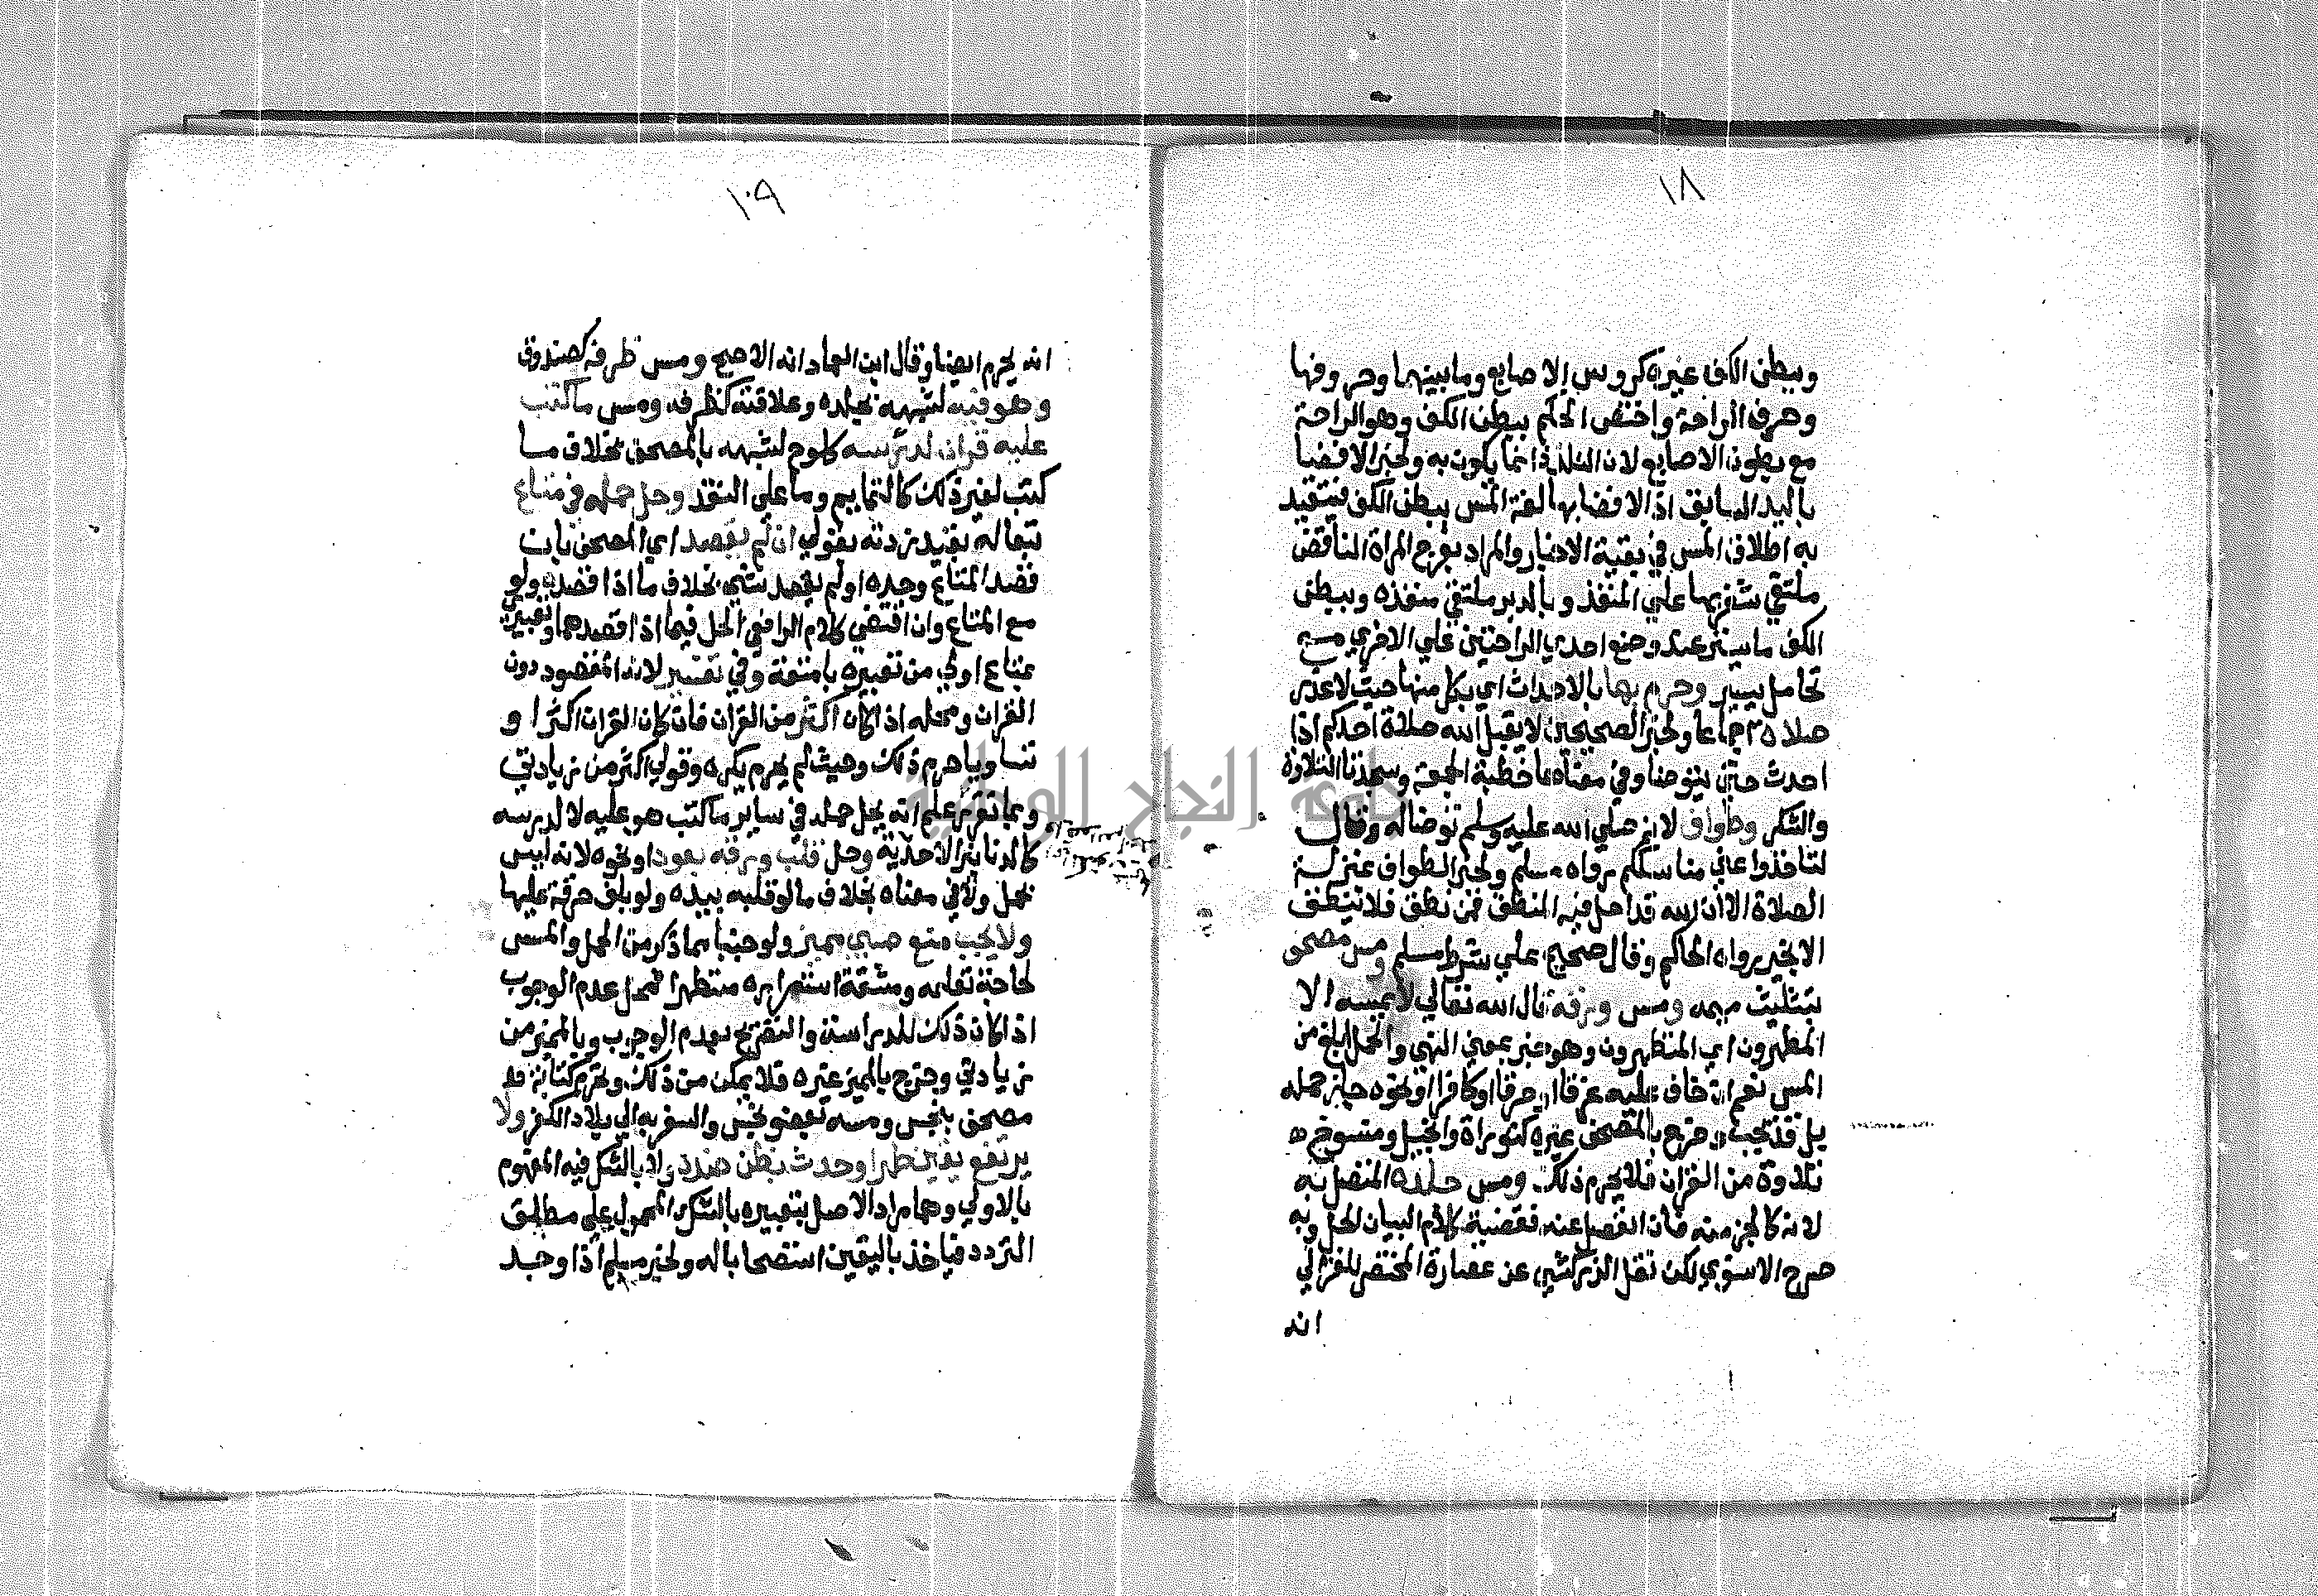 ١٨
وببطن الكف غيره كروس الاصابع وما بينهما وحروفها
وحرف الراحة واختص الحكم ببطن الكف وهو الراحة
مع بطون الاصابع لان التلذذ انما يكون به ولخبر الافضا
باليد السابق اذ الافضا بها لغة المس ببطن الكف فيتقيد
به اطلاق المس في بقية الاخبار والمراد بفرج المراة الناقض
ملتقي شفريها علي المنفذ وبالدبر ملتقي منفذه وببطن
الكف ما يستتر عند وضع احدي الراحتين علي الاخري مع
تحامل يسير وحرم بها بالاحداث اي بكل منها حيث لا عذر
صلاة اجماعا ولخبر الصحيحين لا يقبل الله صلاة احدكم اذا
احدث حتي يتوضا وفي معناه ما خطبة الجمعة وسجدتا التلاوة
والشكر وطواف لانه صلي الله عليه وسلم توضا له وقال
لتاخذوا عني مناسككم رواه مسلم ولخبر الطواف بمنزلة
الصلاة الا ان الله قد احل فيه المنطق فمن نطق فلا ينطق
الا بخير رواه الحاكم وقال صحيح علي شرط مسلم ومس مصحف
بتثليث ميمه ومس ورقه قال الله تعالي لا يمسه الا
المطهرون اي المتطهرون وهو خبر بمعني النهي والحمل ابلغ من
المس نعم ان خاف عليه غرقا او حرقا او كافرا او نحوه جاز حمله
بل قد يجب وخرج بالمصحف غيره كتوراة وانجيل ومنسوخ
تلاوة من القران فلا يحرم ذلك ومس جلده المتصل به
لانه كالجزء منه فان انفصل عنه فقضية كلام البيان الحل وبه
صرح الاسنوي لكن نقل الزركشي عن عصارة المختصر للغزالي
انه
١٠٩
انه يحرم ايضا وقال ابن العماد انه الاصح ومس ظرفه كصندوق
وهو فيه لشبهه بجلده وعلاقته كظرفه ومس ما كتب
عليه قران لدرسه كلوح لشبهه بالمصحف بخلاف ما
كتب لغير ذلك كالتمايم وما علي النقد وحل حمله في متاع
تبعا له بقيد زدته بقولي ان لم يقصد اي المصحف بان
قصد المتاع وحده او لم يقصد شيء بخلاف ما اذا قصد ولو
مع المتاع وان اقتضي كلام الرافعي الحل فيما اذا قصدهما وتعبيري
بمتاع اولي من تعبيره بامتعة وفي تفسير لانه المقصود دون
القران ومحله اذا كان اكثر من القران فان كان القران اكثر او
تساويا حرم ذلك وحيث لم يحرم يكره وقولي اكثر من زيادتي
وبما تقرر علم انه يحل حمله في ساير ما كتب هو عليه لا لدرسه
كالدنانير الاحدية وحل قلب ورقه بعود او نحوه لانه ليس
بحمل ولا في معناه بخلاف ما لو قلبه بيده ولو بلف خرقة عليها
ولا يجب منع صبي مميز ولو جنبا مما ذكر من الحمل والمس
لحاجة تعلمه ومشقة استمراره متطهرا فمحل عدم الوجوب
اذا كان ذلك للدراسة والتصريح بعدم الوجوب وبالمميز من
زيادتي وخرج بالمميز غيره فلا يمكن من ذلك ويحرم كتابة
مصحف بنجس ومسه بعضو نجس والسفر به الي بلاد الكفر ولا
يرتفع يقين طهر او حدث بظن ضده ولا بالشك فيه المفهوم
بالاولي وهما مراد الاصل بتعبيره بالشك المحمول علي مطلق
التردد فياخذ باليقين استصحابا له ولخبر مسلم اذا وجد
جامعة النجاح الوطنية